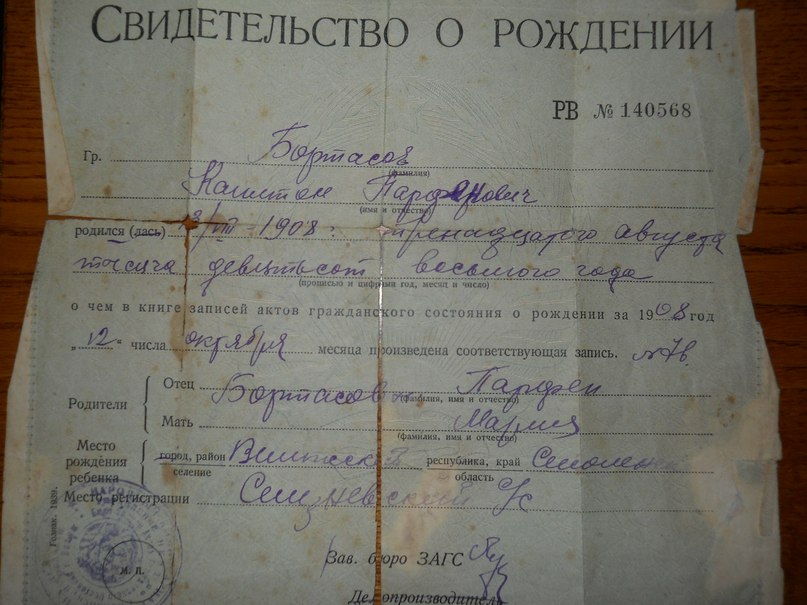 СВИДЕТЕЛЬСТВО О РОЖДЕНИИ
РВ № 140568
Гр. Бортасов
(фамилия)
Капитон Парфенович
(имя и отчество)
родился (лась) 13/VIII - 1908 г. тринадцатого августа
тысяча девятьсот восьмого года
(прописью и цифрами год, месяц и число)
о чем в книге записей актов гражданского состояния о рождении за 1908 год
„12“ числа октября месяца произведена соответствующая запись. №76.
Родители
Отец Бортасов Парфен
(фамилия, имя и отчество)
Мать Мария
(фамилия, имя и отчество)
Место рождения ребенка
город, район Велижский республика, край Смоленск
селение область
Место регистрации
М. П.
Гознак. 1939.
Зав. бюро ЗАГС
Делопроизводитель